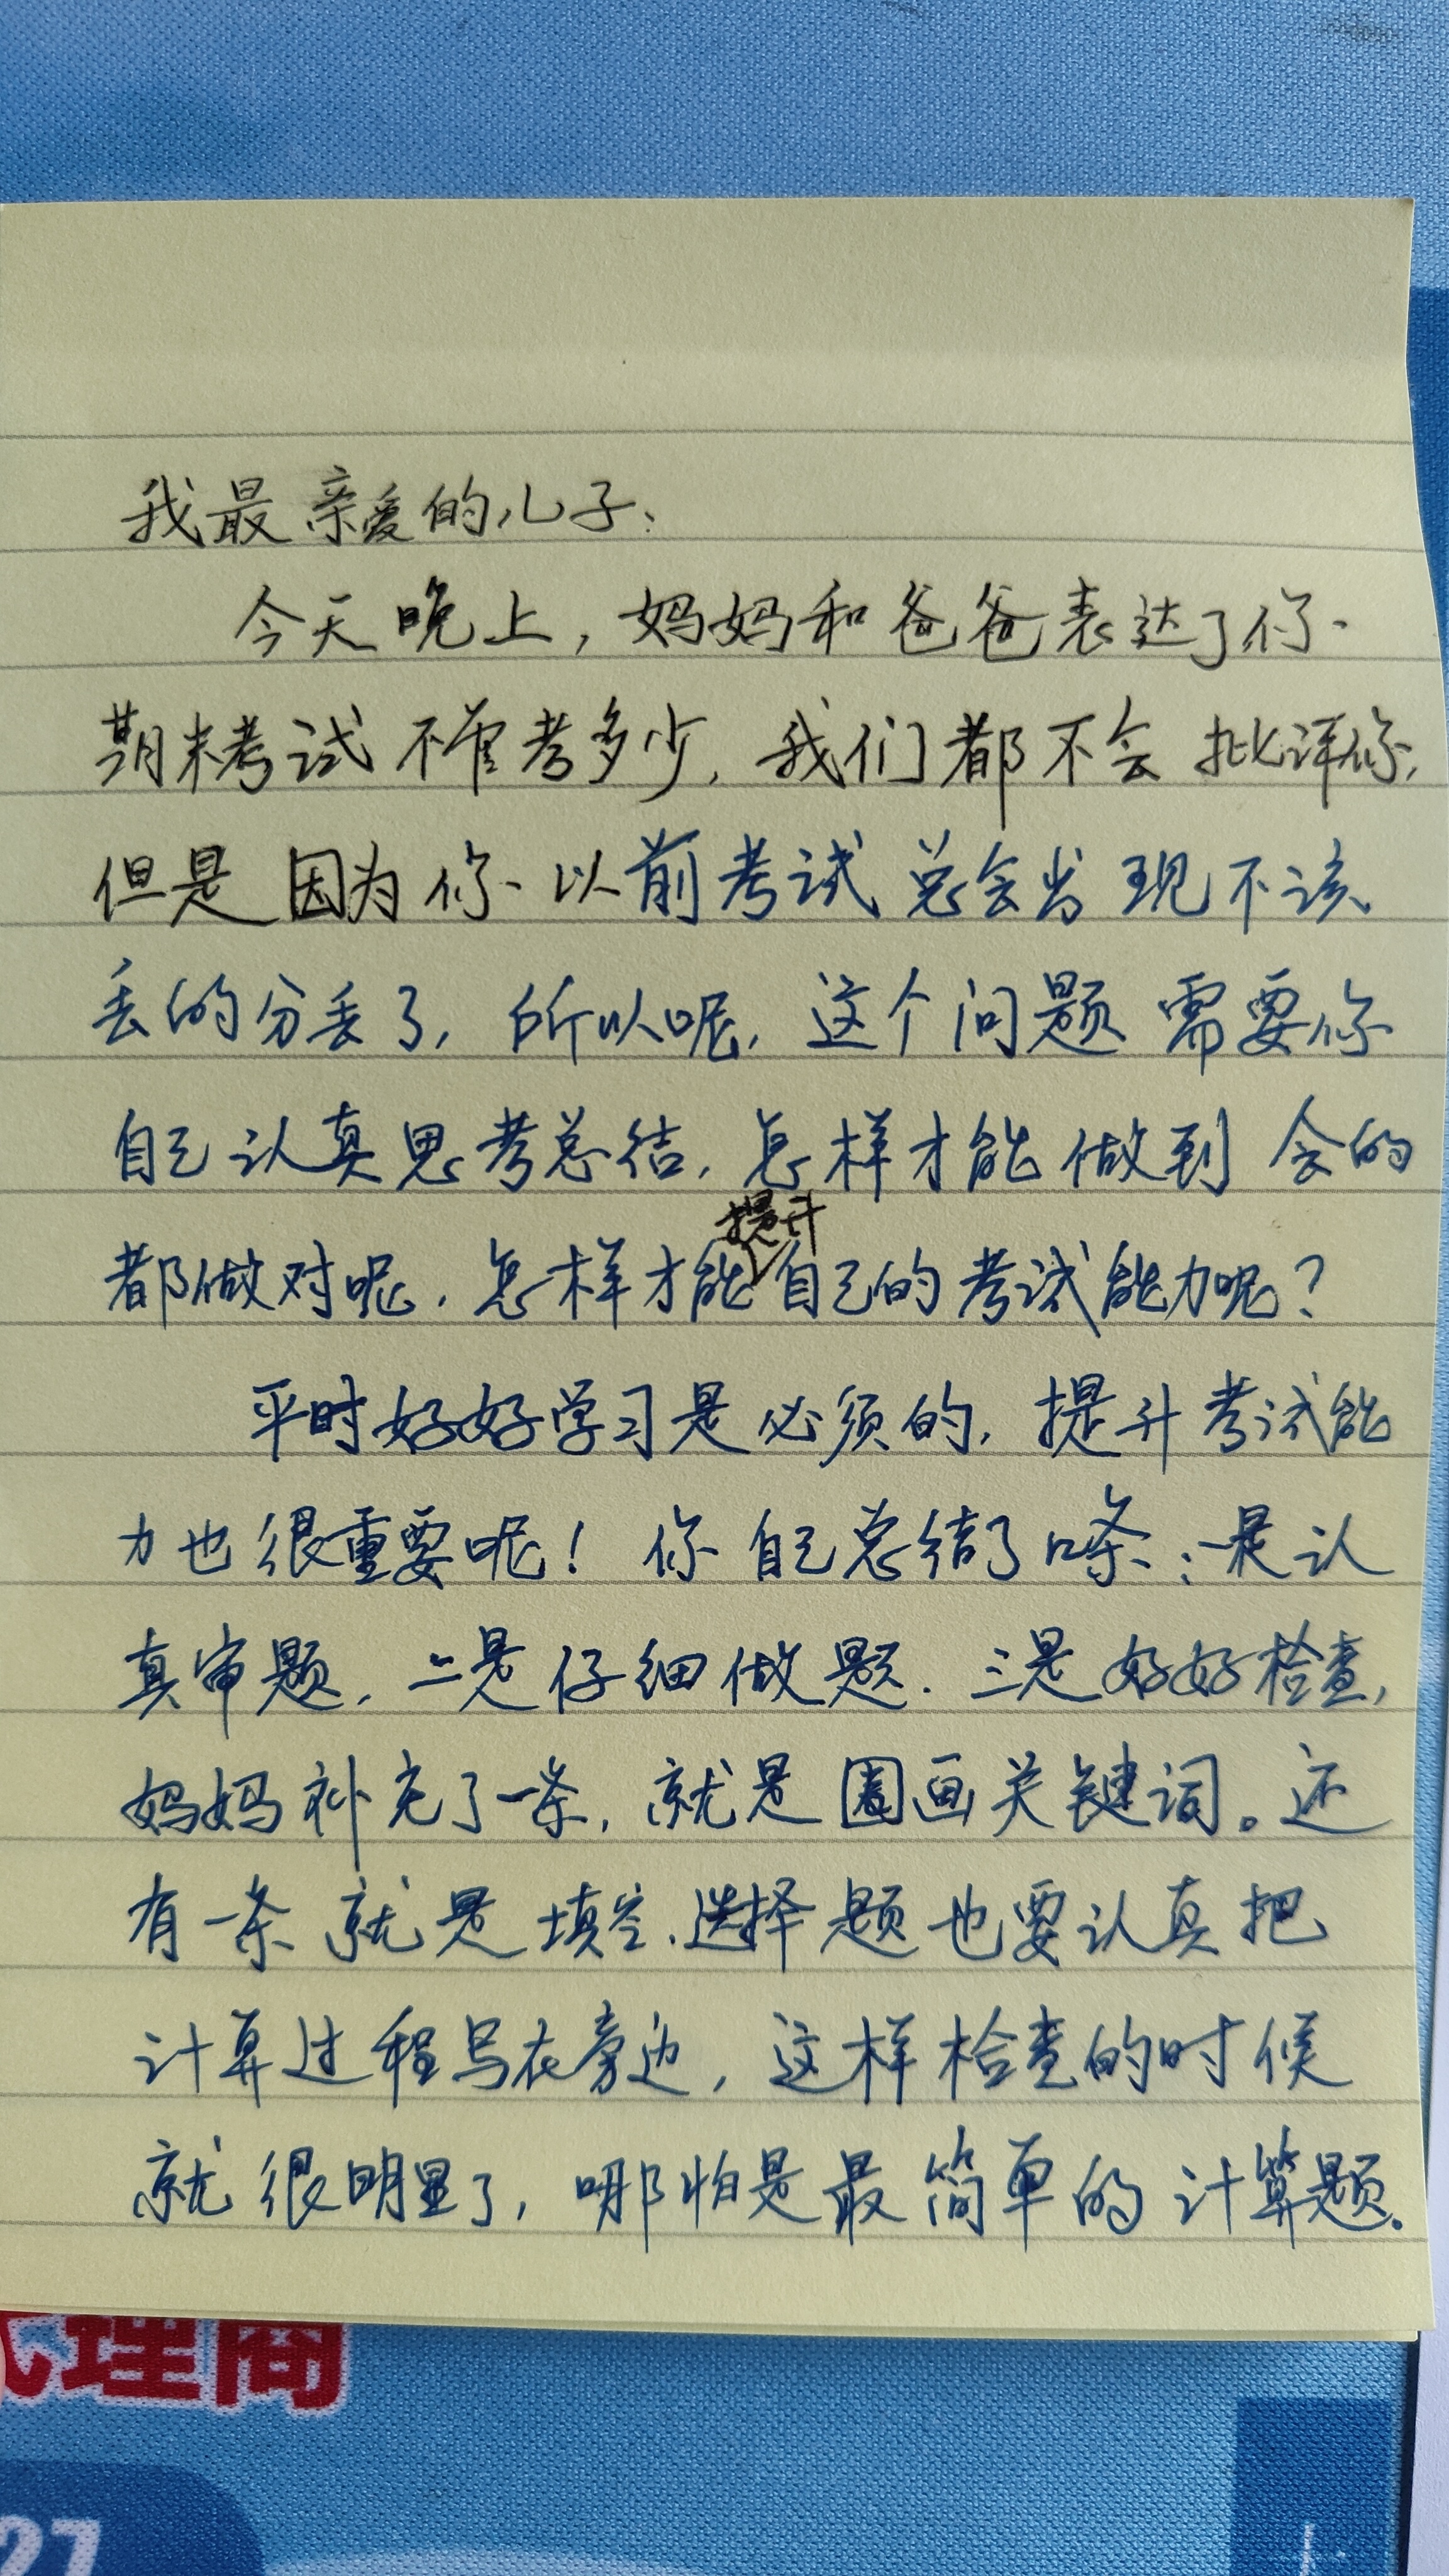 我最亲爱的儿子：
今天晚上，妈妈和爸爸表达了你
期末考试不管考多少，我们都不会批评你，
但是因为你以前考试总会出现不该
丢的分丢了，所以呢，这个问题需要你
自己认真思考总结，怎样才能做到会的
提升
都做对呢，怎样才能自己的考试能力呢？
平时好好学习是必须的，提升考试能
力也很重要呢！你自己总结了几条：一是认
真审题，二是仔细做题．三是好好检查，
妈妈补充了一条，就是圈画关键词。还
有一条就是填空．选择题也要认真把
计算过程写在旁边，这样检查的时候
就很明显了，哪怕是最简单的计算题。
代理商
27